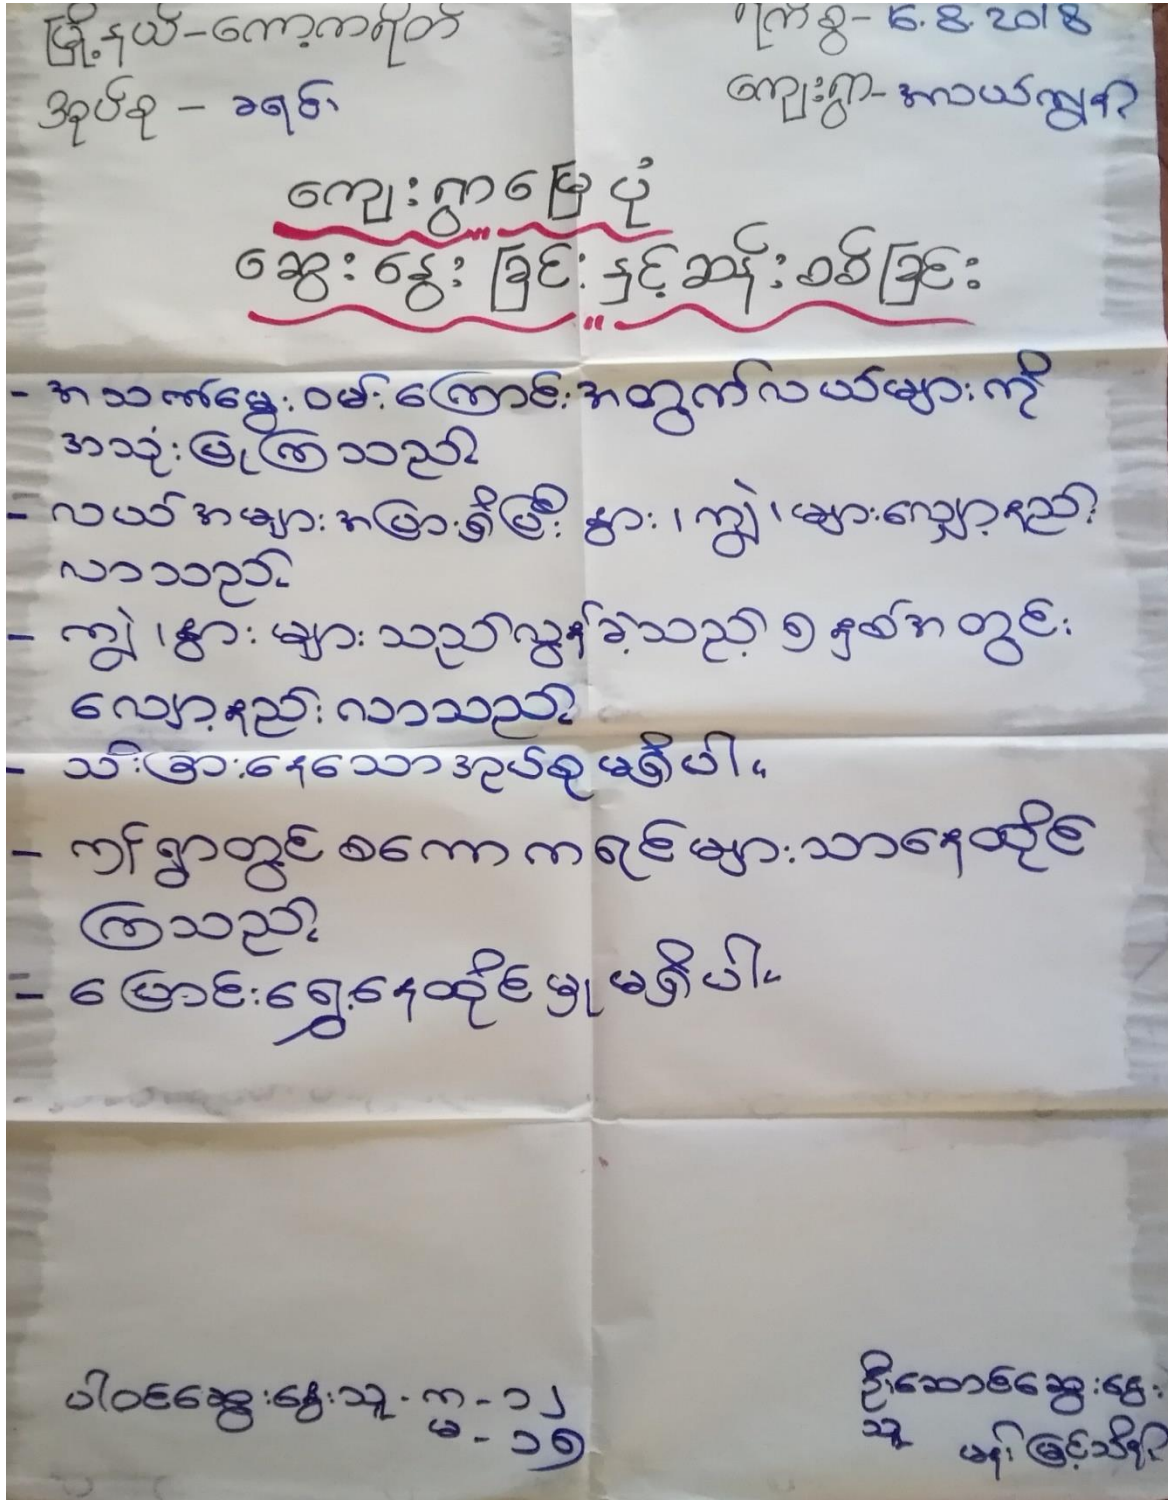 မြို့နယ်-ကော့ကရိတ် ရက်စွဲ- 16.8.2018
အုပ်စု - ခရင် ကျေးရွာ- အလယ်ကျွန်း
ကျေးရွာမြေပုံ
ဆွေးနွေးခြင်းနှင့်ဆန်းစစ်ခြင်း
- အသက်မွေးဝမ်းကြောင်းအတွက်လယ်များကို
အသုံးပြုကြသည်။
- လယ်အများအပြားရှိပြီး နွား၊ကျွဲ၊များလျှော့နည်း
လာသည်။
- ကျွဲ၊နွားများသည်လွန်ခဲ့သည့် ၅ နှစ်အတွင်း
လျော့နည်းလာသည်။
- သီးခြားနေသောအုပ်စုမရှိပါ။
- ဤရွာတွင် စကောကရင်များသာနေထိုင်
ကြသည်။
- ပြောင်းရွှေ့နေထိုင်မှုမရှိပါ။
ပါဝင်ဆွေးနွေးသူ- ကျ - ၁၂ ဦးဆောင်ဆွေးနွေး
မ - ၁၅ သူ
မန်းမြင့်သိန်း